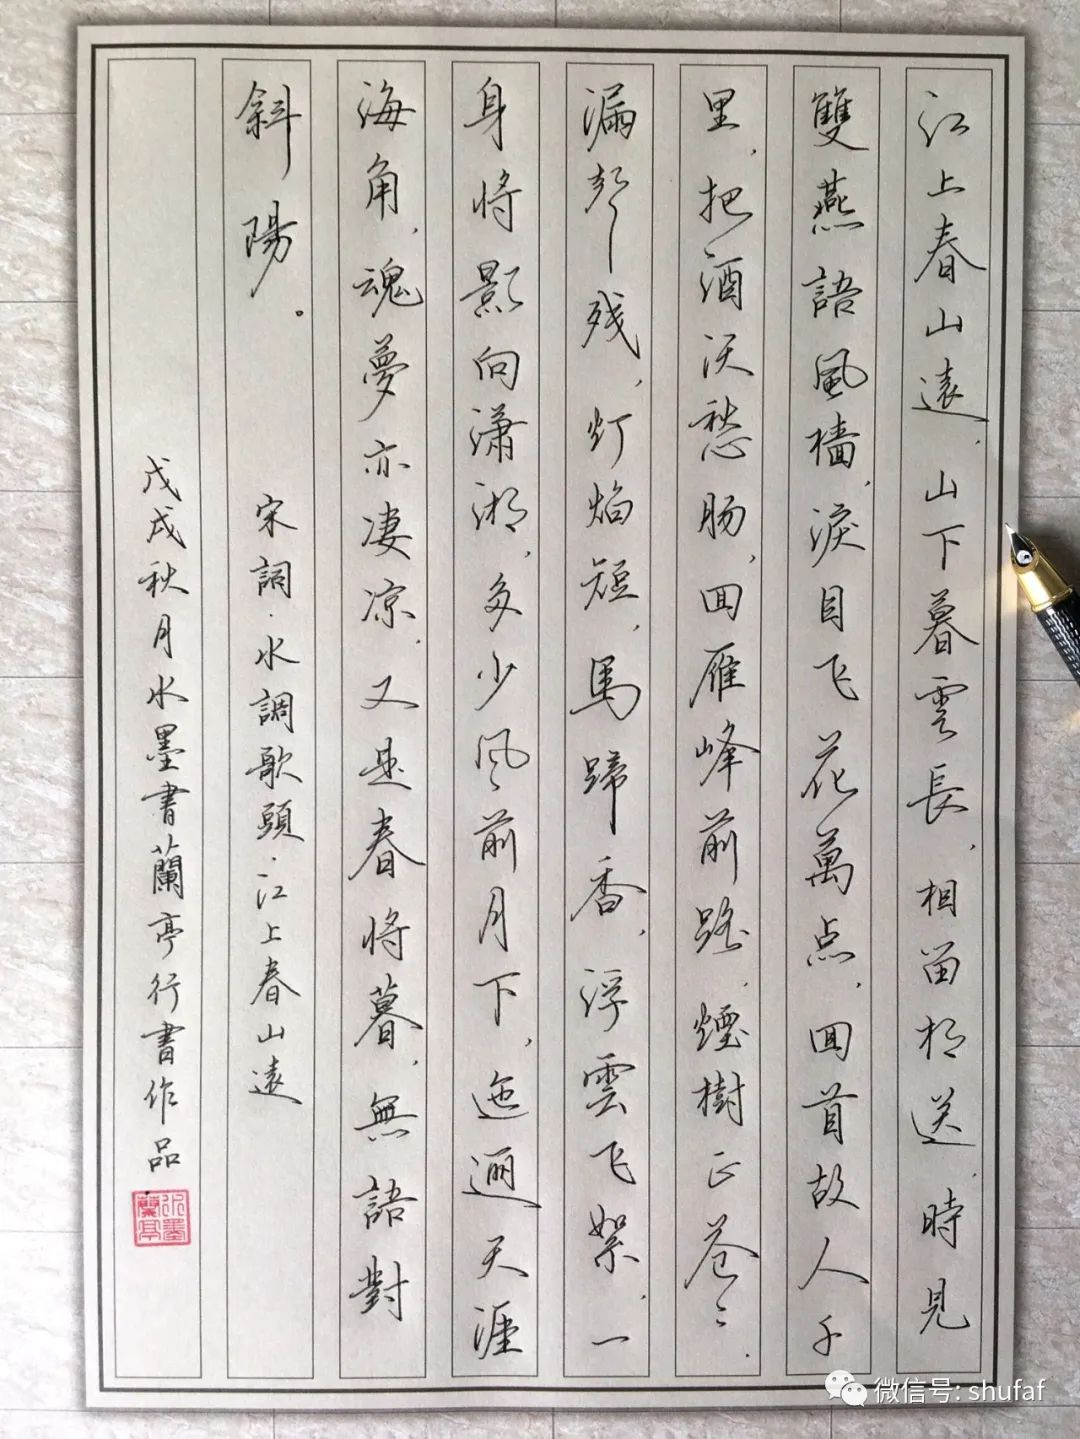 江上春山遠，山下暮雲長，相留相送，時見
雙燕語風檣，淚目飞花萬点，回首故人千
里，把酒沃愁肠，回雁峰前路，煙樹正苍々。
漏聲残，灯焰短，馬蹄香，浮雲飞絮，一
身将影向潇湘，多少风前月下，迤逦天涯
海角，魂夢亦凄凉，又是春将暮，無語對
斜陽。
宋詞·水調歌頭·江上春山遠
戊戌秋月水墨書蘭亭行書作品
水墨蘭亭
微信号: shufaf